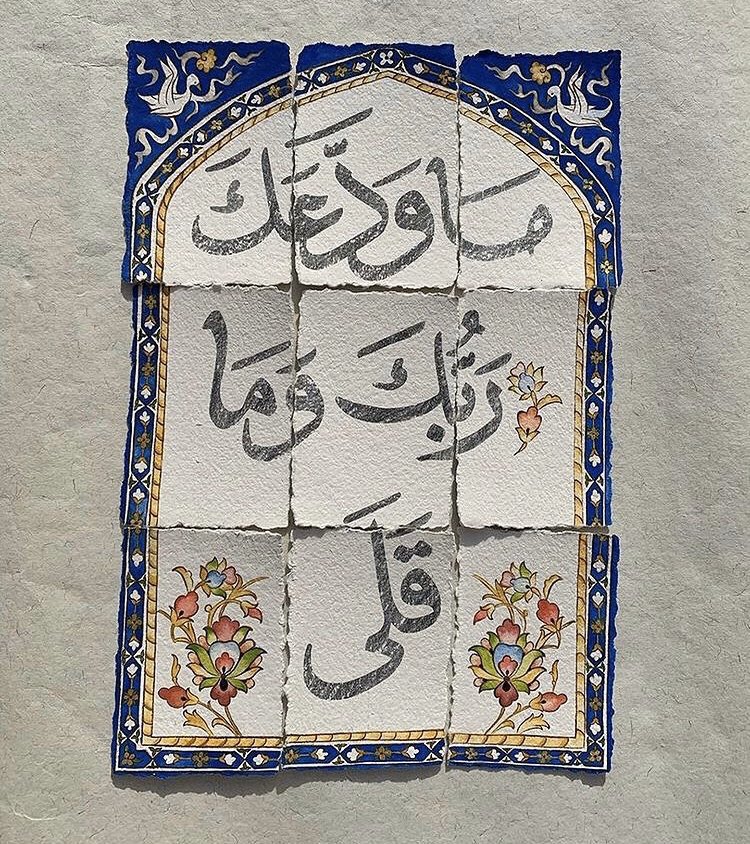 ما ودَّعَكَ
رَبُّكَ وَمَا
قَلَى